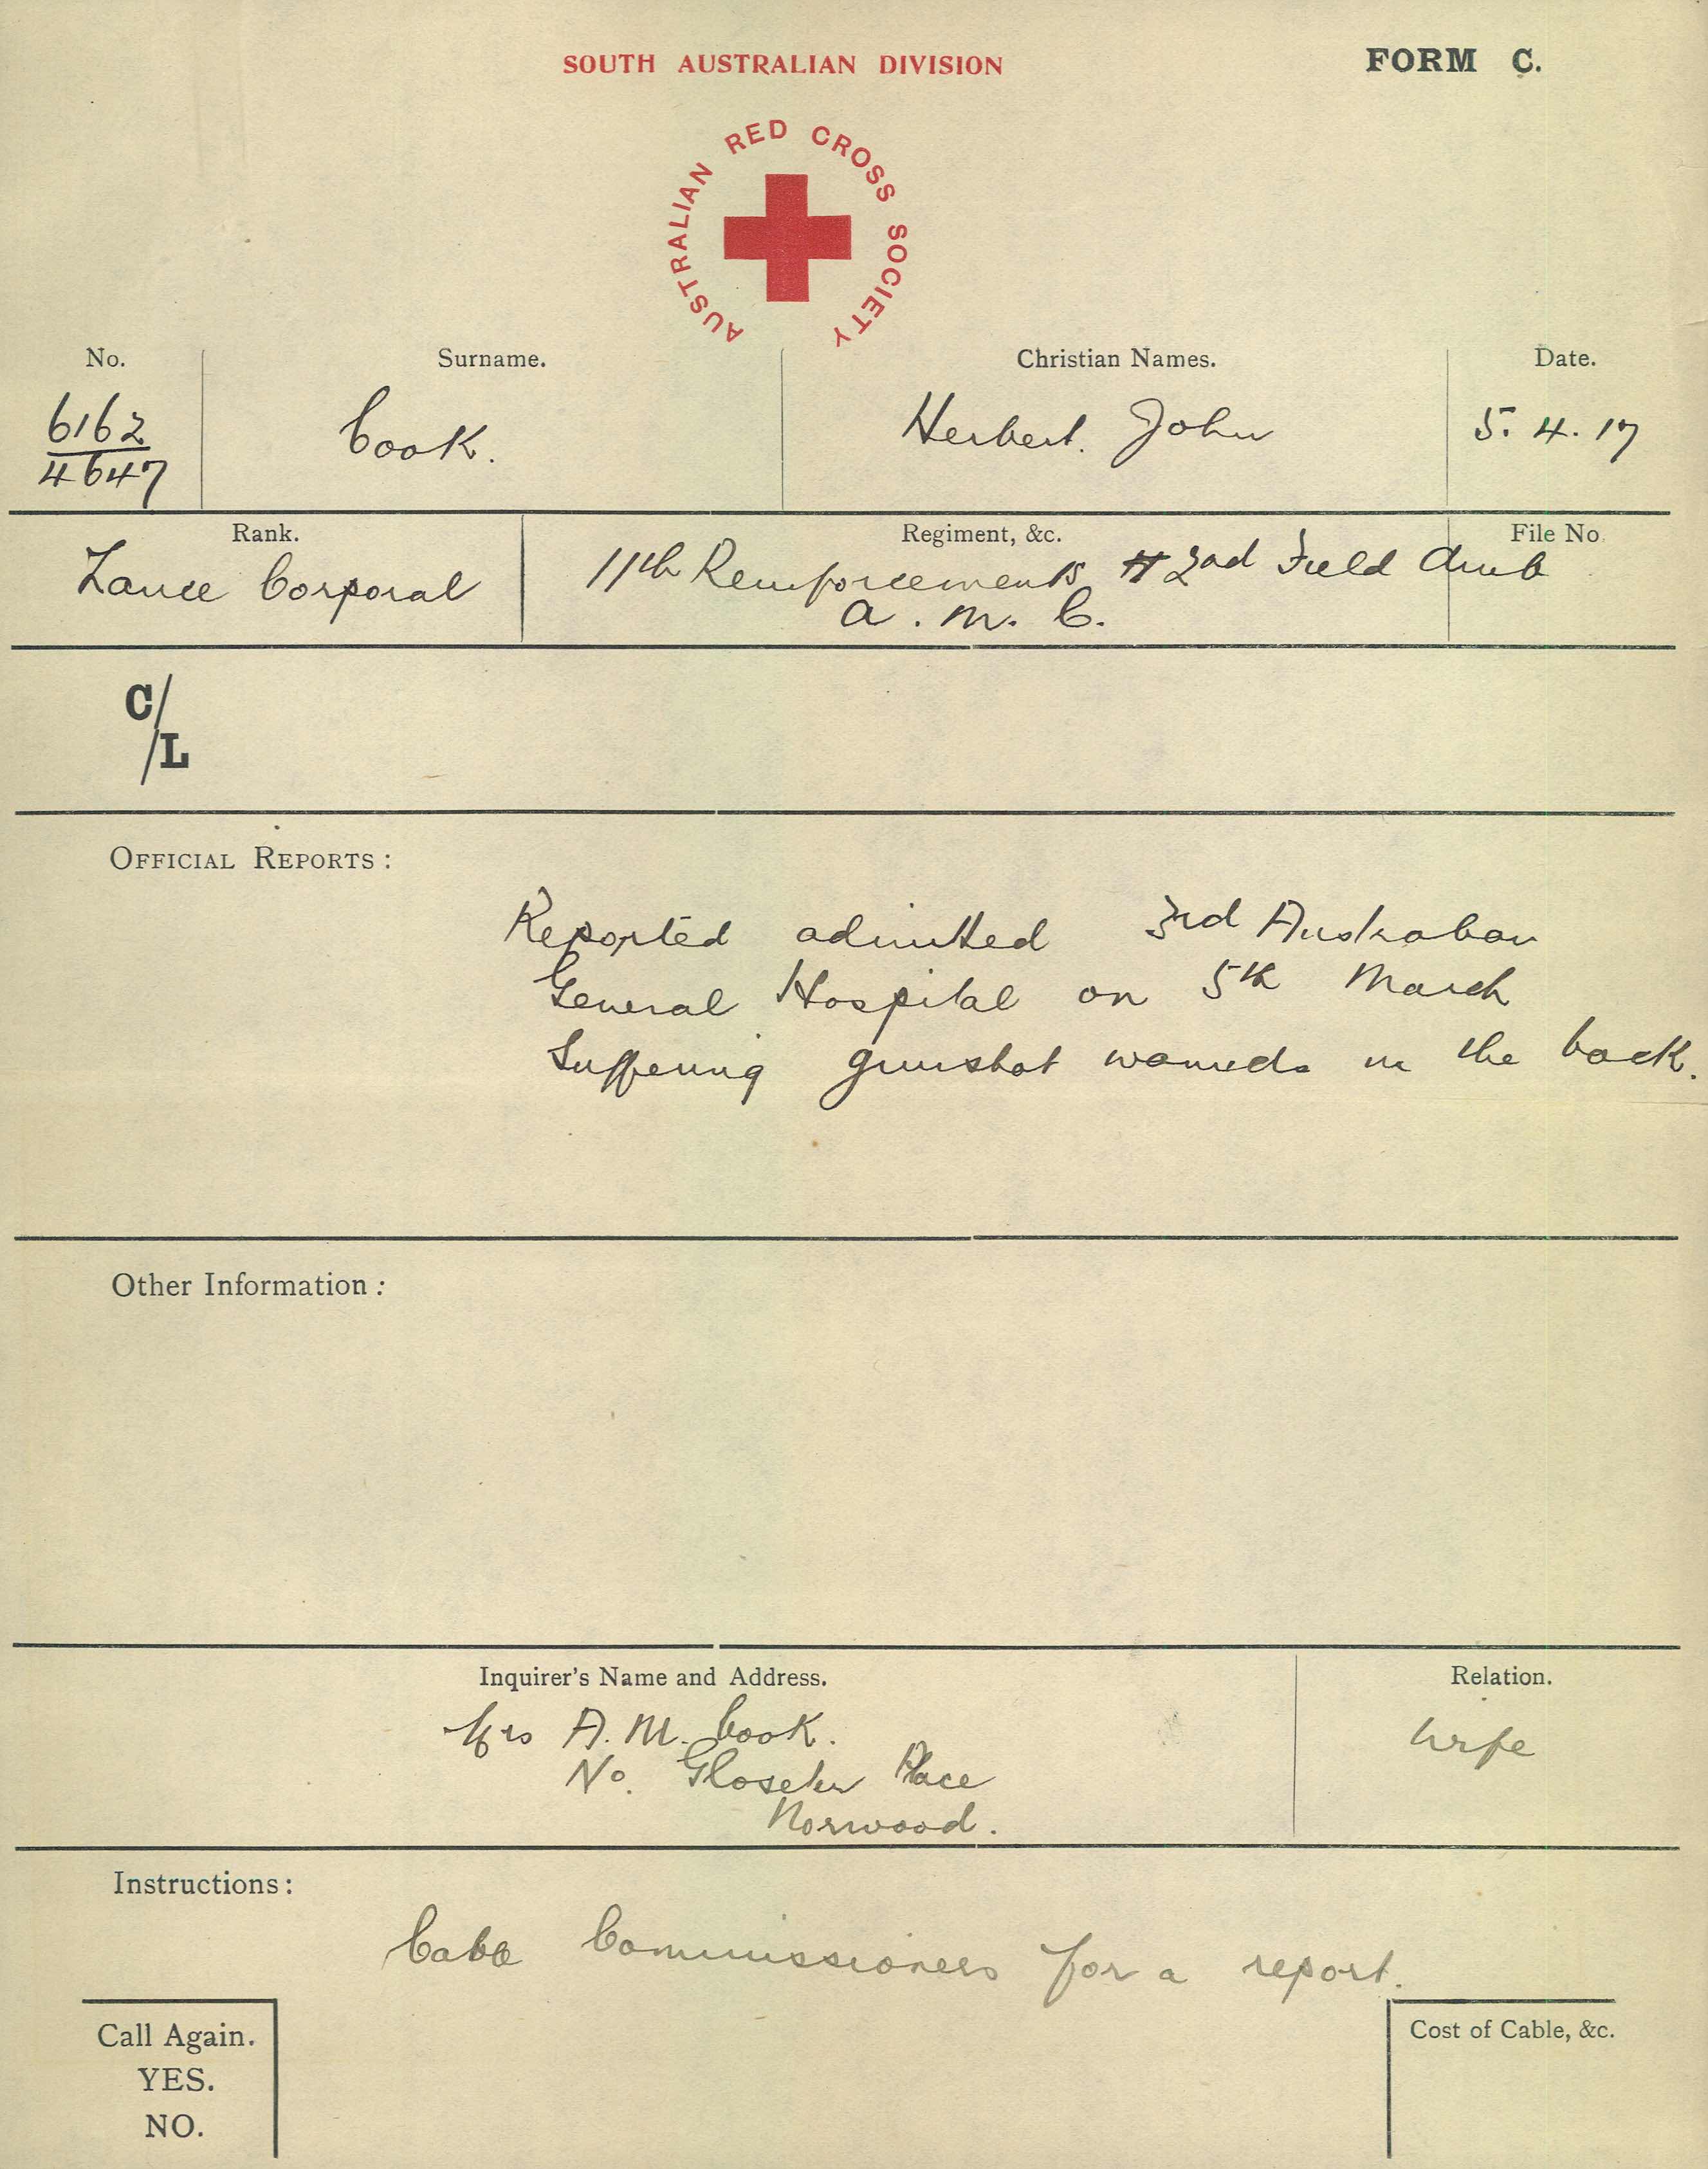 SOUTH AUSTRALIAN DIVISION
FORM C.
AUSTRALIAN RED CROSS SOCIETY
No.
Surname.
Christian Names.
Date.
6162
4647
Cook.
Herbert. John
5. 4. 17
Rank.
Regiment, &c.
File No.
Lance Corporal
11th Reinforcements 2nd Field Amb
A. M. C.
C/
/L
OFFICIAL REPORTS:
Reported admitted 3rd Australian
General Hospital on 5th March
Suffering gunshot wounds in the back.
Other Information:
Inquirer's Name and Address.
Relation.
Mrs A. M. Cook.
No. Gloseter Place
Norwood.
Wife
Instructions:
Commissioners for a report.
Call Again.
YES.
NO.
Cost of Cable, &c.